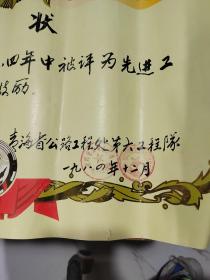 状
四年中被评为先进工
鼓励。
青海省公路工程处第六工程隊
一九八四年十二月